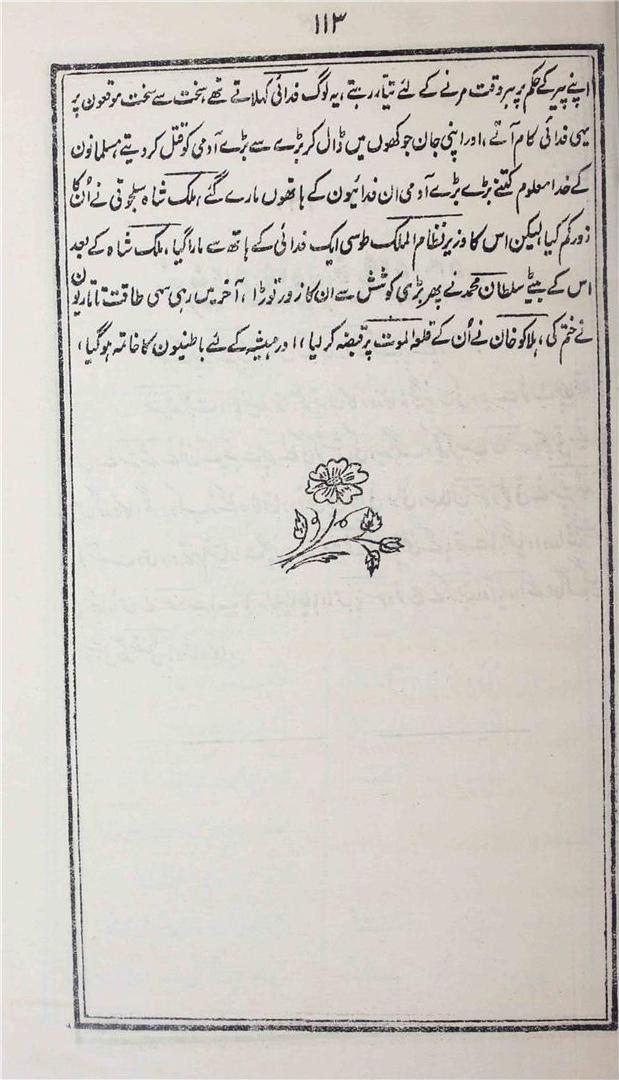 ۱۱۳
اپنے پیر کے حکم پر ہر وقت مرنے کے لئے تیار رہتے، یہ لوگ فدائی کہلاتے تھے، سخت سے سخت موقعون پر
یہی فدائی کام آتے، اور اپنی جان جوکھوں میں ڈال کر بڑے سے بڑے آدمی کو قتل کر دیتے، مسلمانون
کے خدا معلوم کتنے بڑے بڑے آدمی ان فدائیون کے ہاتھوں مارے گئے، ملک شاہ سلجوقی نے اُن کا
زور کم کیا، لیکن اس کا وزیر نظام الملک طوسی ایک فدائی کے ہاتھ سے مارا گیا، ملک شاہ کے بعد
اس کے بیٹے سلطان محمد نے پھر بڑی کوشش سے ان کا زور توڑا، آخر میں رہی سہی طاقت تاتاریون
نے ختم کی، ہلاکو خان نے اُن کے قلعہ الموت پر قبضہ کر لیا، اور ہمیشہ کے لئے باطنیون کا خاتمہ ہو گیا،